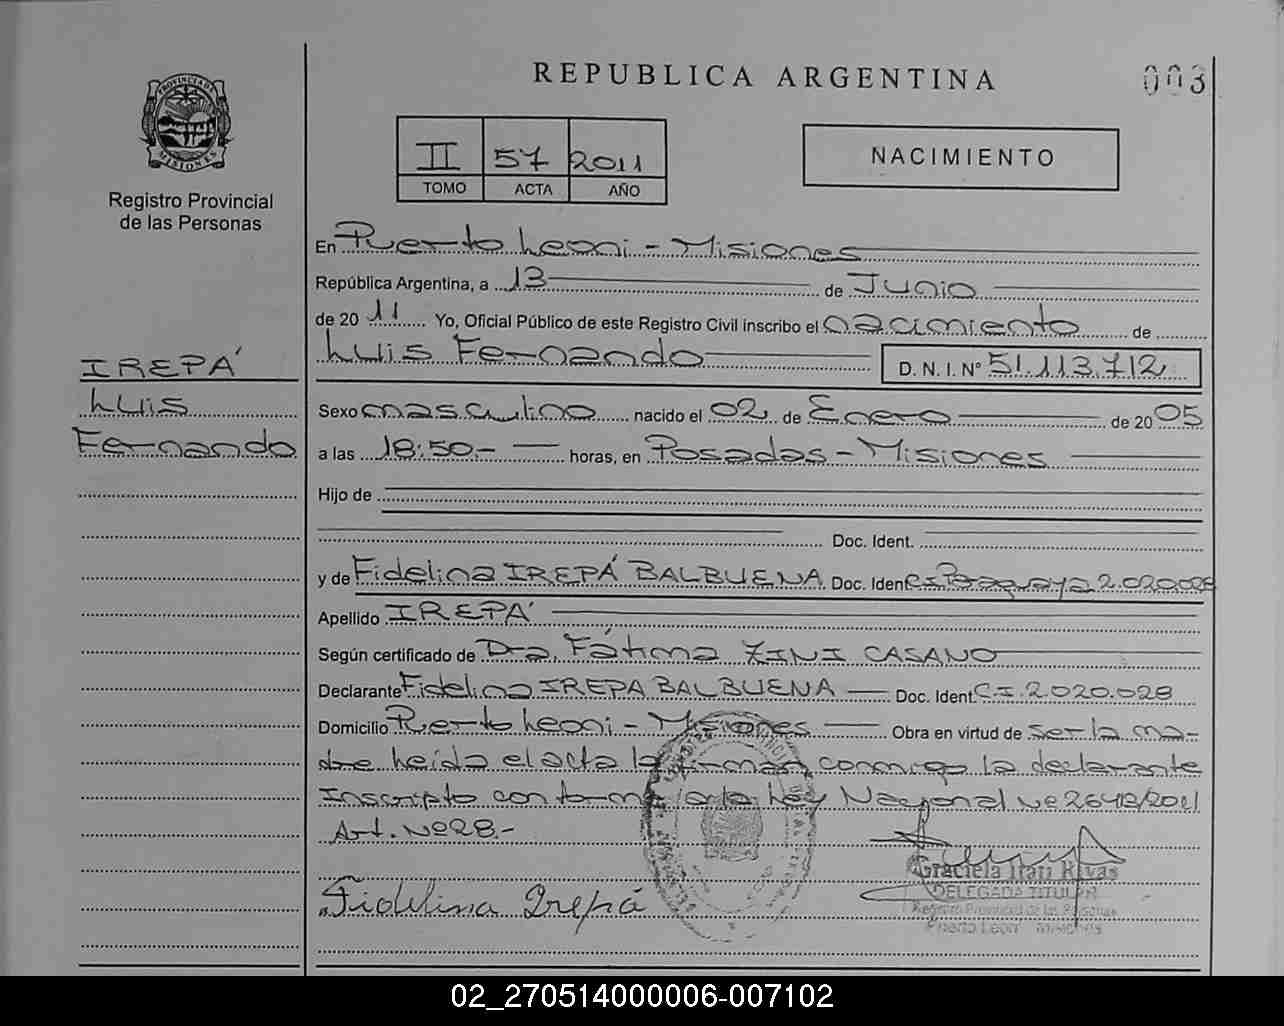 REPUBLICA ARGENTINA
003
PROVINCIA DE MISIONES
Registro Provincial
de las Personas
II 57 2011
TOMO ACTA AÑO
NACIMIENTO
En Puerto Leoni - Misiones
República Argentina, a 13 de Junio
de 2011 Yo, Oficial Público de este Registro Civil inscribo el nacimiento de
Luis Fernando D. N. I. Nº 51.113.712
IREPÁ
Luis
Fernando
Sexo masculino nacido el 02 de Enero de 2005
a las 18:50.- horas, en Posadas - Misiones
Hijo de
Doc. Ident.
y de Fidelina IREPÁ BALBUENA Doc. Ident C.I. Paraguaya 2.020.028
Apellido IREPÁ
Según certificado de Dra. Fátima ZINI CASANO
Declarante Fidelina IREPA BALBUENA Doc. Ident. C.I. 2.020.028
Domicilio Puerto Leoni - Misiones Obra en virtud de ser la ma-
dre Leída el acta la firman conmigo la declarante
Inscripto conforme a la Ley Nacional Nº 26413/2011
Art. Nº 28.-
Fidelina Irepá
Graciela Itatí Rivas
DELEGADA TITULAR
Registro Provincial de las Personas
Puerto Leoni Misiones
02_270514000006-007102